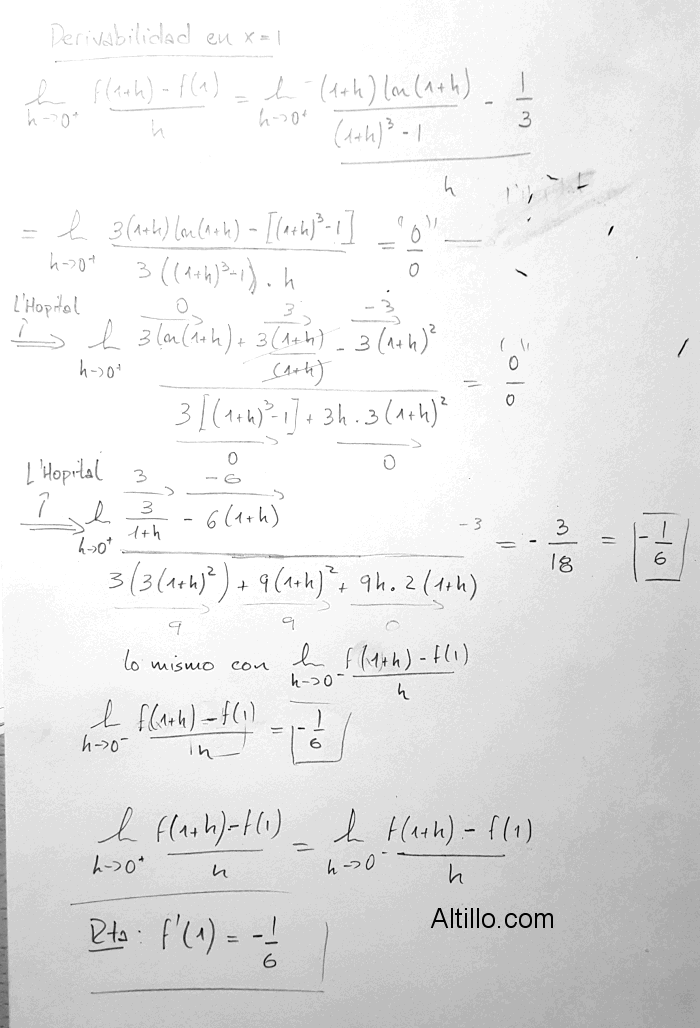 Derivabilidad en x=1
lim h→0⁺ (f(1+h) - f(1))/h = lim h→0⁺ ((1+h) ln(1+h)/((1+h)³ - 1) - 1/3)/h
= lim h→0⁺ (3(1+h) ln(1+h) - [(1+h)³-1])/(3((1+h)³-1).h) = "0"/0
L'Hopital
0 3 -3
⇒ lim h→0⁺ (3 ln(1+h) + 3(1+h)/(1+h) - 3(1+h)²)/(3[(1+h)³-1] + 3h.3(1+h)²) = "0"/0
0 0
L'Hopital 3 -6
⇒ lim h→0⁺ (3/(1+h) - 6(1+h))/(3(3(1+h)²) + 9(1+h)² + 9h.2(1+h)) = -3/18 = -1/6
-3
9 9 0
lo mismo con lim h→0⁻ (f(1+h) - f(1))/h
lim h→0⁻ (f(1+h) - f(1))/h = -1/6
lim h→0⁺ (f(1+h)-f(1))/h = lim h→0⁻ (f(1+h) - f(1))/h
Rta: f'(1) = -1/6
Altillo.com